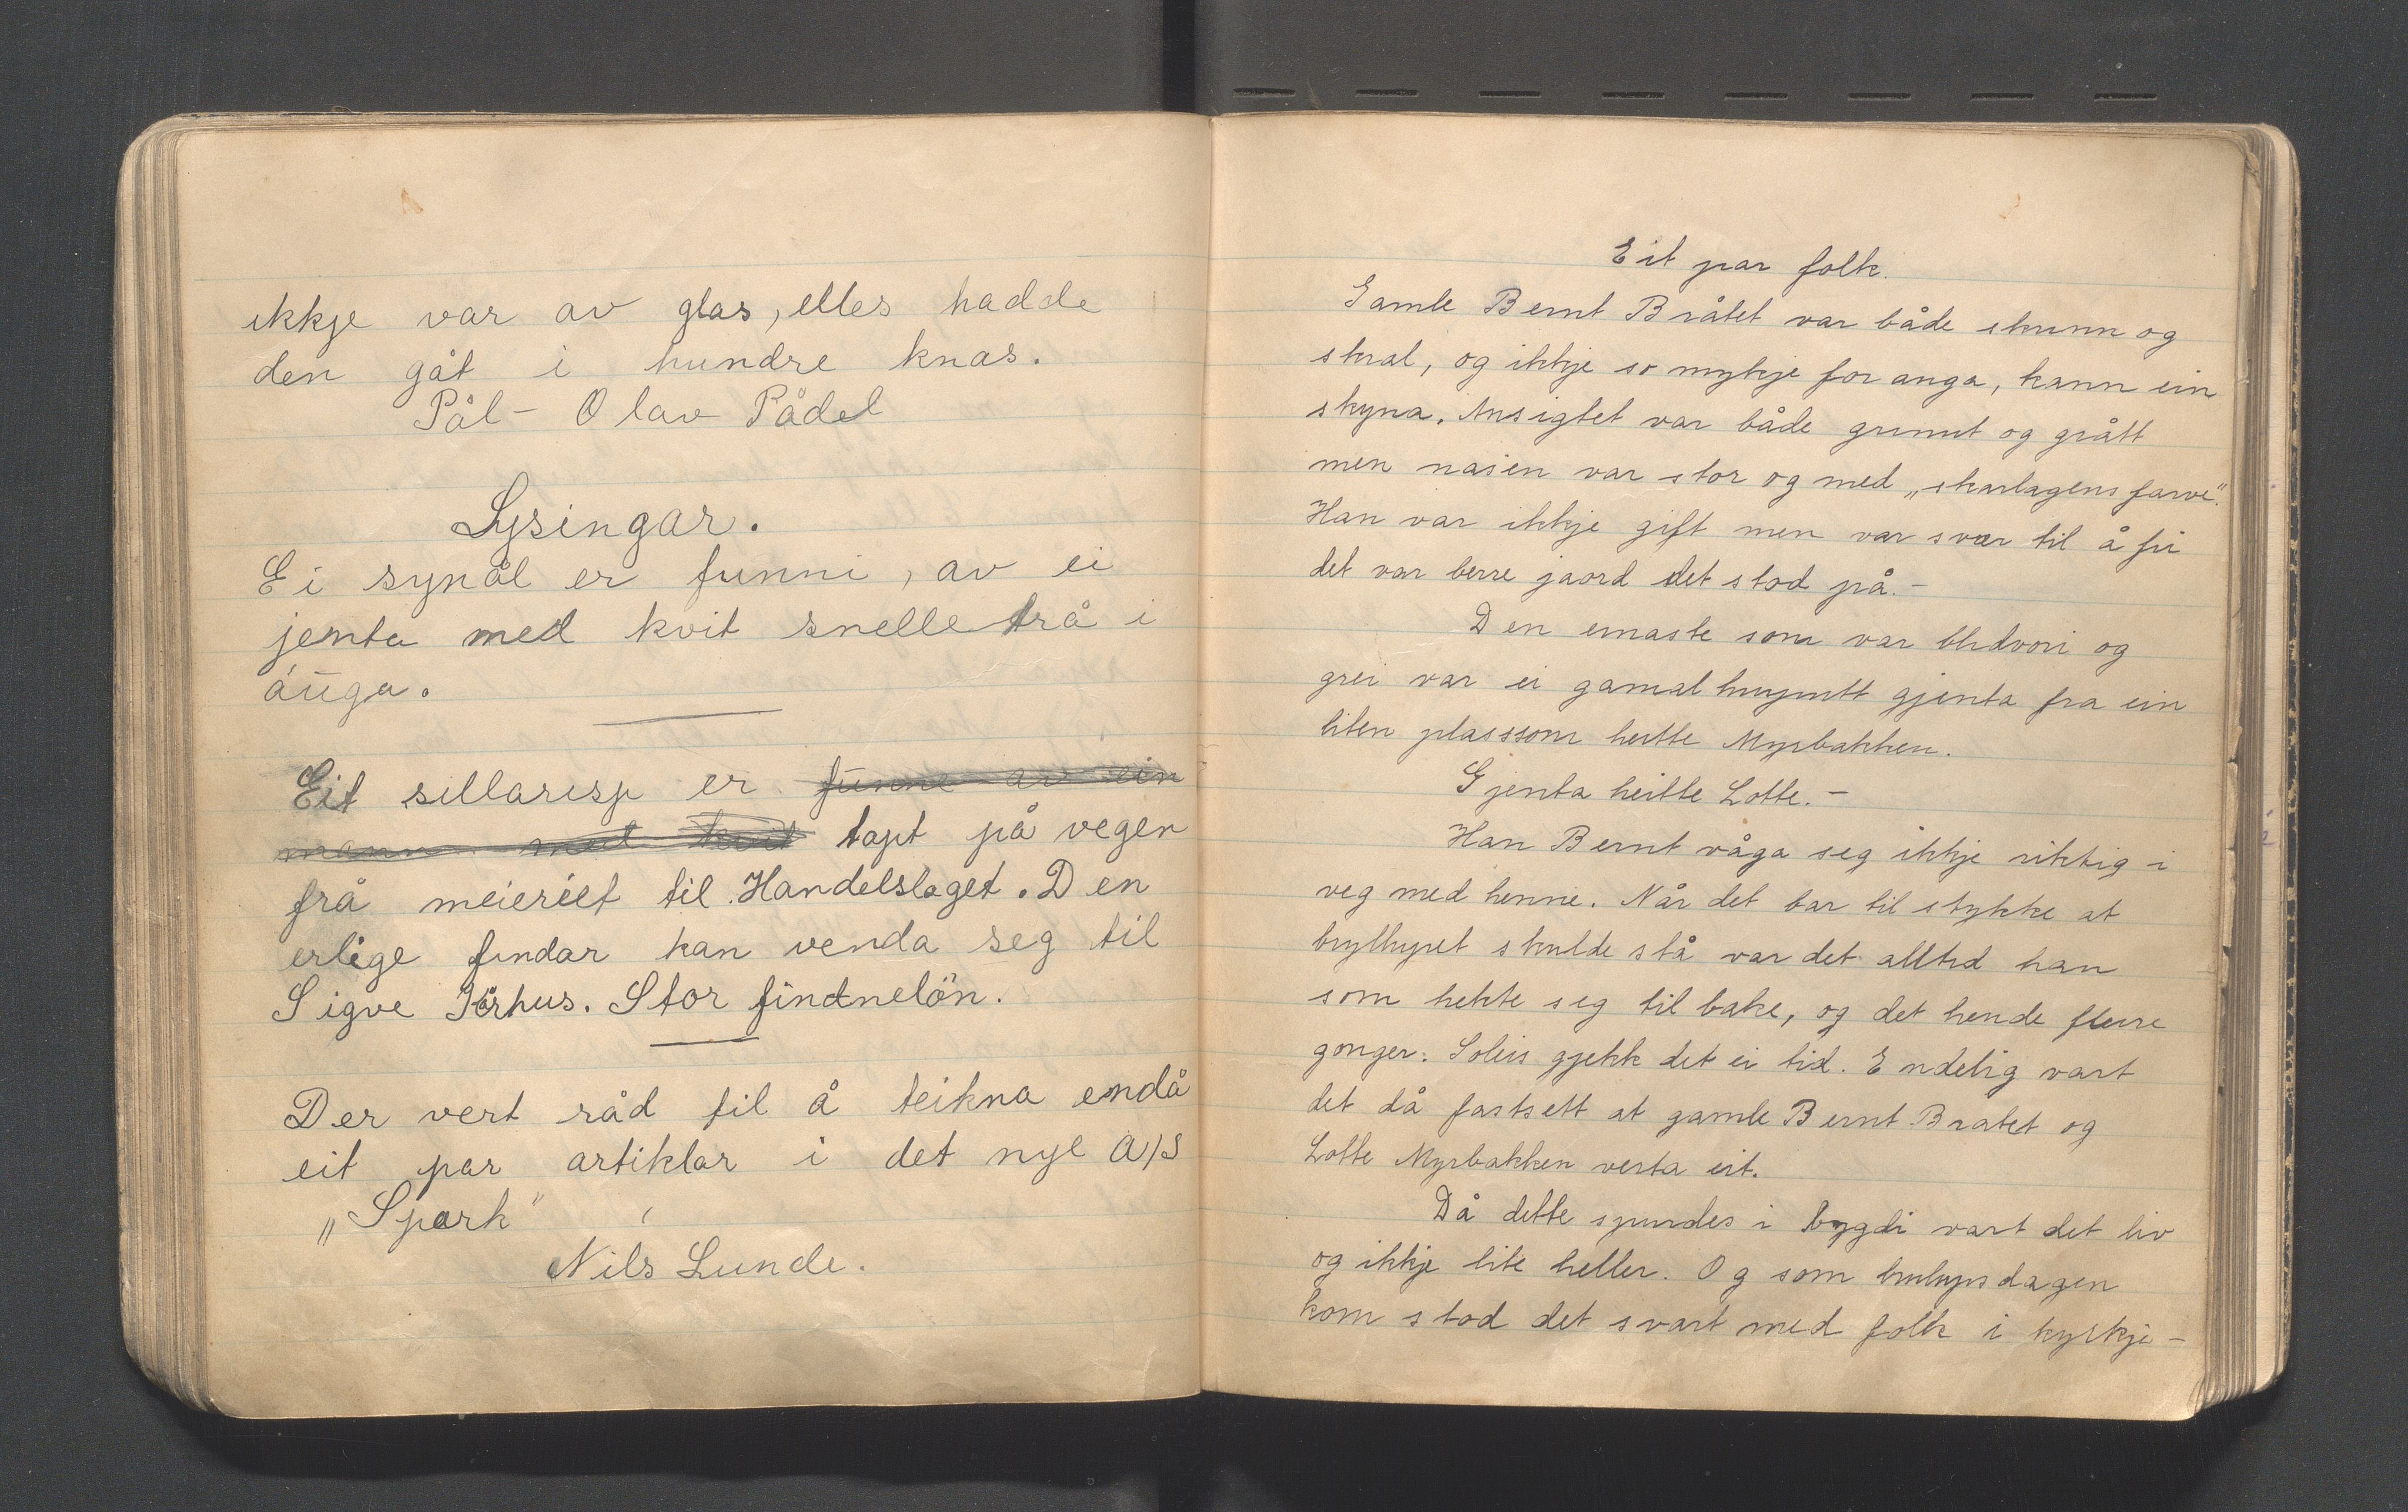 ikkje var av glas, elles hadde
den gåt i hundre knas.
Pål-Olav Pådel
Lysingar.
Ei synål er funni, av ei
jenta med kvit snelletrå i
auga.
Eit sellaresp er funne av ein
mann med kvit tapt på vegen
frå meieriet til Handelslaget. Den
erlige findar kan venda seg til
Sigve Norhus. Stor findnelön.
Der vert råd til å teikna endå
eit par artiklar i det nye A/S
„Spark"
Nils Lunde.
Eit par folk.
Gamle Bernt Bråtet var både skunn og
skral, og ikkje so mykje for auga, kann ein
skyna. Ansigtet var både grunnt og grått
men nasen var stor og med „skarlagens farve".
Han var ikkje gift men var svær til å fri
det var berre jaord det stod på.-
Den einaste som var blidvori og
grei var ei gamal gjenta fra ein
liten plass som heitte Myrbakken.
Gjenta heitte Lotte.-
Han Bernt våga seg ikkje riktig i
veg med henne. Når det bar til stykke at
bryllupet skulde stå var det alltid han
som hekte seg til bake, og det hende fleire
gonger. Soleis gjekk det ei tid. Endelig vart
det då fastsett at gamle Bernt Bratet og
Lotte Myrbakken verta eit.
Då dette spurdes i bygdi vart det liv
og ikkje lite heller. Og som brulupsdagen
kom stod det svart med folk i kyrkje-